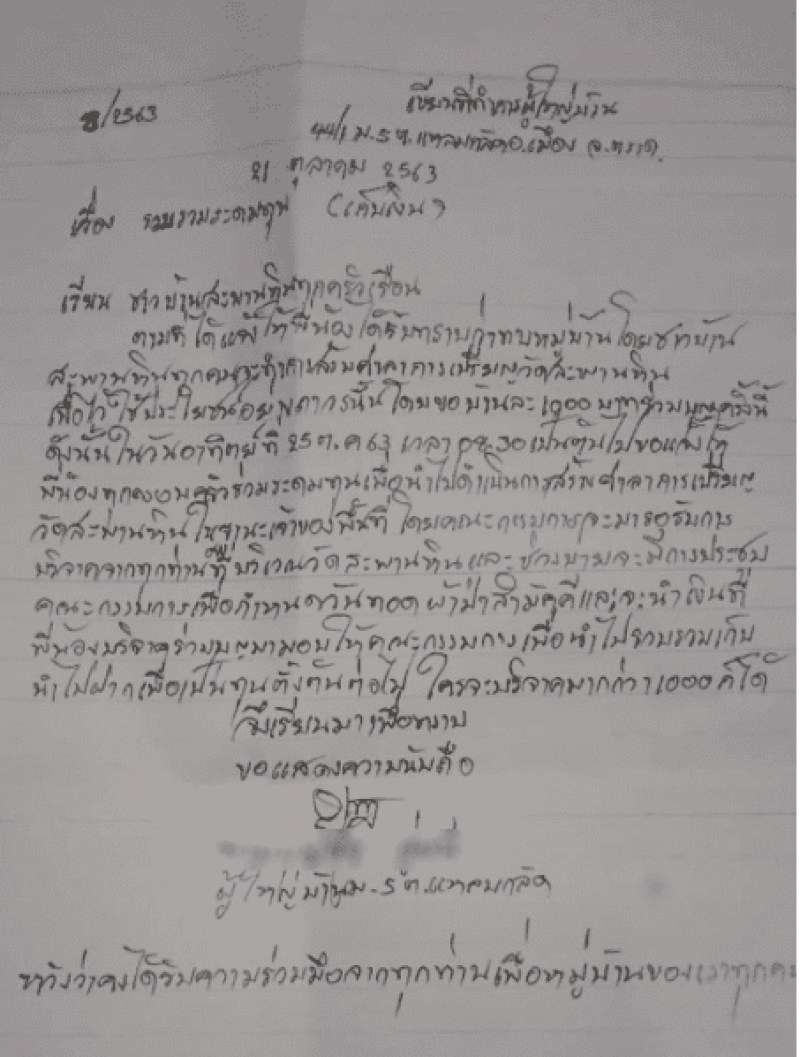 8/2563
เขียนที่ทำการผู้ใหญ่บ้าน
44/1 ม.5 ต.แหลมกลัด อ.เมือง จ.ตราด
21 ตุลาคม 2563
เรื่อง รวบรวมระดมทุน (เก็บเงิน)
เรียน ชาวบ้านสะพานหินทุกครัวเรือน
ตามที่ได้แจ้งให้พี่น้องได้รับทราบทั้งหมู่บ้านโดยชาวบ้าน
สะพานหินทุกคนจะทำการสร้างศาลาการเปรียญวัดสะพานหิน
เพื่อไว้ใช้ประโยชน์ โดยขอบ้านละ 1000 บาทร่วมบุญครั้งนี้
ดังนั้นในวันอาทิตย์ที่ 25 ต.ค 63 เวลา 08.30 เป็นต้นไปขอแจ้งให้
พี่น้องทุกครัวรวมระดมทุนเพื่อนำไปดำเนินการสร้างศาลาการเปรียญ
วัดสะพานหิน ในฐานะเจ้าของพื้นที่ โดยคณะกรรมการจะมารอรับการ
บริจาคจากทุกท่านที่บริเวณวัดสะพานหินและช่วงบ่ายจะมีการประชุม
คณะกรรมการเพื่อกำหนดวันทอดผ้าป่าสามัคคีและจะนำเงินที่
พี่น้องบริจาคร่วมบุญมามอบให้คณะกรรมการเพื่อนำไปรวบรวมเก็บ
นำไปฝากเพื่อเป็นทุนตั้งต้นต่อไป ใครจะบริจาคมากกว่า 1000 ก็ได้
จึงเรียนมาเพื่อทราบ
ขอแสดงความนับถือ
ผู้ใหญ่บ้าน ม.5 ต.แหลมกลัด
หวังว่าคงได้รับความร่วมมือจากทุกท่านเพื่อหมู่บ้านของเราทุกคน